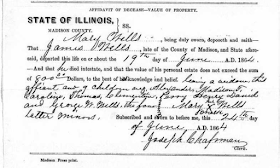 AFFIDAVIT OF DECEASE—VALUE OF PROPERTY.
STATE OF ILLINOIS,
MADISON COUNTY. } SS.
Mary Wells, being duly sworn, deposeth and saith
That James Wells, late of the County of Madison, and State afore-
said, departed this life on or about the 19th day of June A.D. 1864
and that he died intestate, and that the value of his personal estate does not exceed the sum
of 900 00 Dollars, to the best of knowledge and belief leaving a widow this
affiant and children Alexander, Madison F.
Caroline, Thomas David and
and George W. Wells, the four Mary Wells
latter minors. Subscribed
before me, this 24th day
of June, A.D. 1864
Joseph Chapman
Madison Press print.